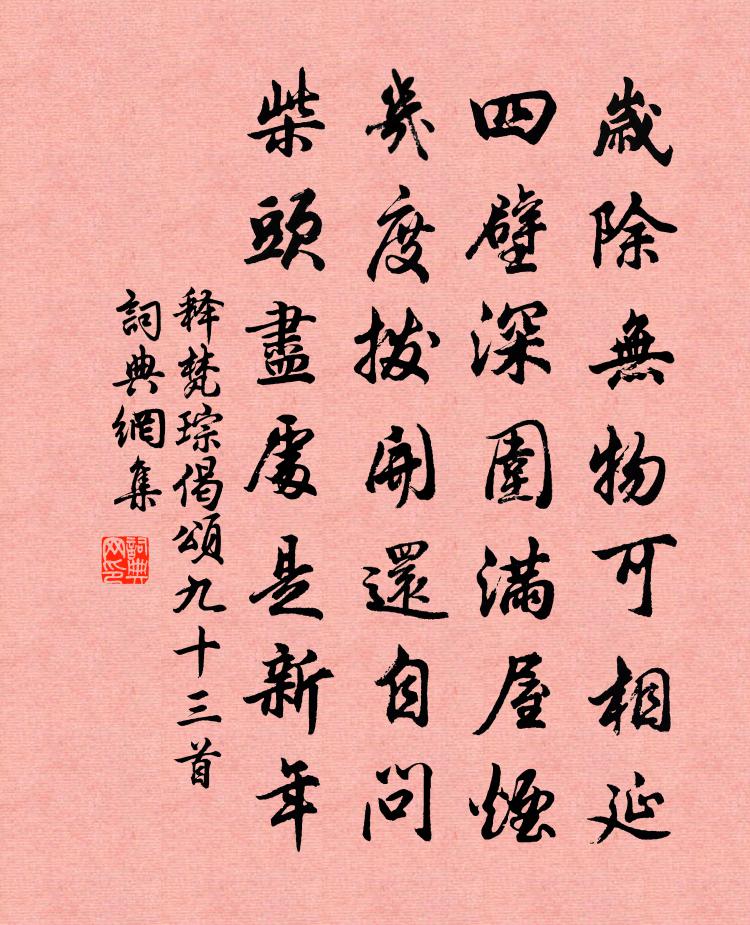 歲除無物可相延
四壁深圍滿屋煙
幾度撥開還自問
柴頭盡處是新年
释梵琮偈頌九十三首
詞典網集
詞典网印